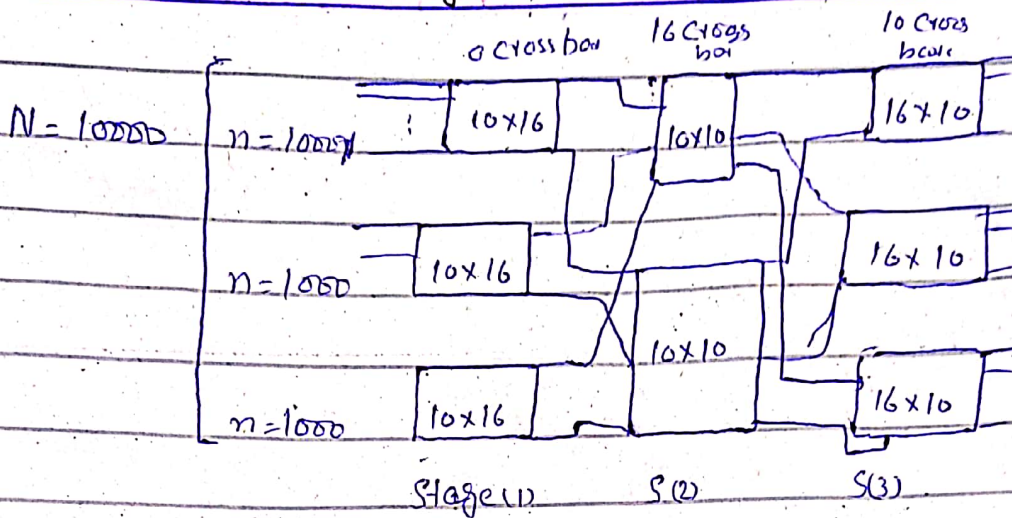 0 cross bar 16 Cross bar 10 Cross bar
N = 10000
n = 1000
10x16
10x10
16x10
n = 1000
10x16
16x10
10x10
n = 1000
10x16
16x10
Stage (1) S(2) S(3)